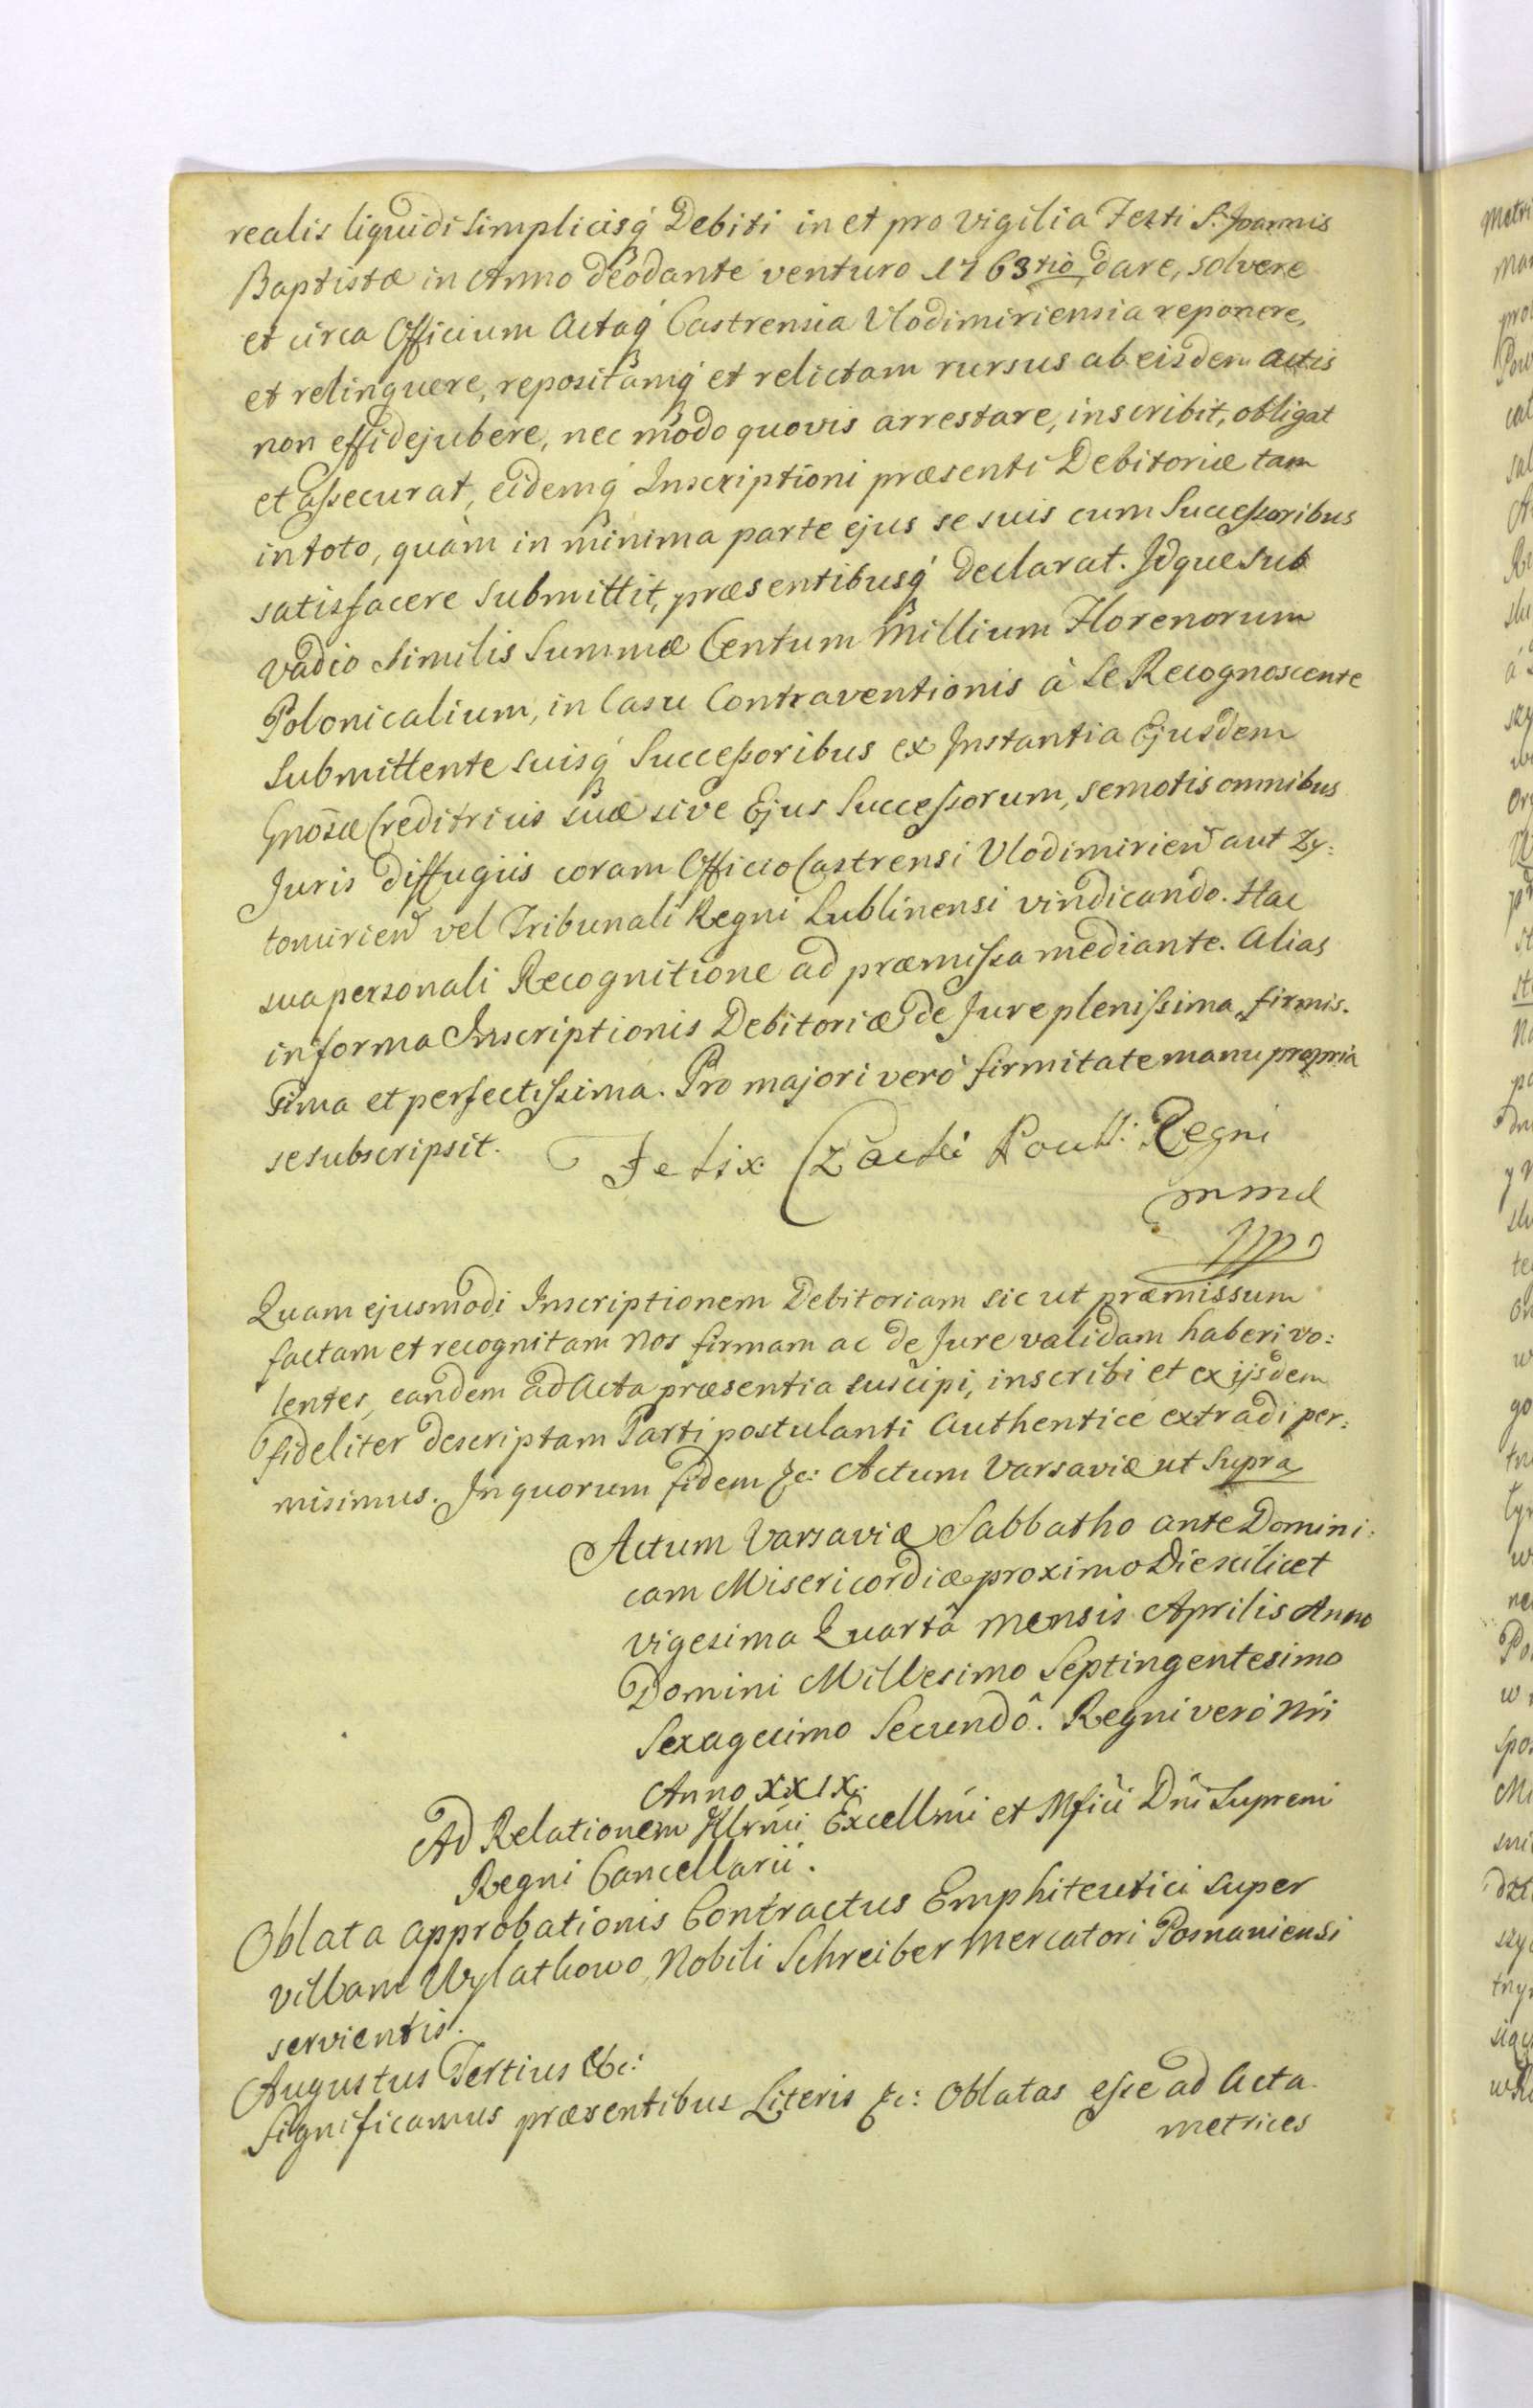 realis liquidi Simplicisq́ Debiti in et pro vigilia Festi S: Joannis
Baptistæ in Anno deodante venturo 1763tio, dare, solvere
et circa Officium Actaq́ Castrensia Vlodimiriensia reponere,
et relinquere, repositamq́ et relictam rursus ab eisdem Actis
non effidejubere, nec modo quovis arrestare, inscribit, obligat
et aſsecurat, eidemq́ Inscriptioni præsenti Debitoriæ tam
in toto, quàm in minima parte ejus se suis cum Succeſsoribus
satisfacere Submittit, præsentibusq́ declarat. Idque sub
vadio Similis Summæ Centum Millium Florenorum
Polonicalium, in Casu Contraventionis à Se Recognoscente
Submittente suisq́ Succeſsoribus ex Instantia Ejusdem
Gnosæ Creditricis suæ sive Ejus Succeſsorum, semotis omnibus
Juris diffugiis coram Officio Castrensi Vlodimirieñ aut Zy:
tomirieñ vel Tribunali Regni Lublinensi vindicando. Hac
sua personali Recognitione ad præmiſsa mediante. Alias
in forma Inscriptionis Debitoriæ de Jure pleniſsima, firmis.
sima et perfectiſsima. Pro majori verò firmitate manu propria
se subscripsit.
Felix Czacki Regni
mp
Quam ejusmodi Inscriptionem Debitoriam sic ut præmissum
factam et recognitam Nos firmam ac de Jure validam haberi vo:
lentes, eandem ad Acta præsentia suscipi, inscribi et ex ijsdem
fideliter descriptam Parti postulanti Authenticè extradi per:
misimus. In quorum fidem &c: Actum Varsaviæ ut Supra
Actum Varsaviæ Sabbatho ante Domini:
cam Misericordiæ proximo Die scilicet
vigesima Quartâ Mensis Aprilis Anno
Domini Millesimo Septingentesimo
Sexagesimo Secundô. Regni verò Nri
Anno XXIX.
Ad Relationem Illrmi Excellmi et Mfici Dni Supremi
Regni Cancellarii.
Oblata approbationis Contractus Emphiteutici super
villam Wylatkowo, Nobili Schreiber Mercatori Posnaniensi
servientis.
Augustus Tertius &c:
Significamus præsentibus Literis &c: Oblatas eſse ad Acta
metrices